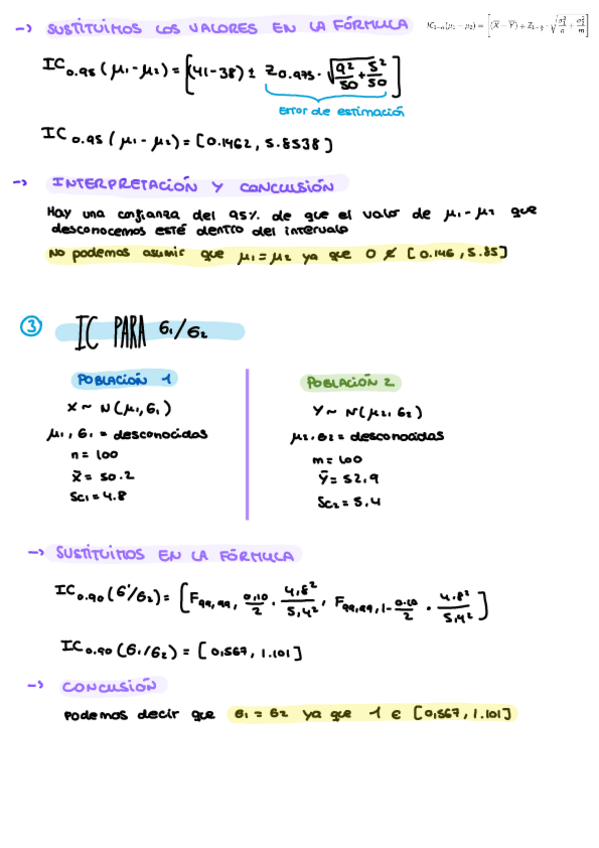 → SUSTITUIMOS LOS VALORES EN LA FÓRMULA IC₁₋α(μ₁ − μ₂) = [(X̄ − Ȳ) ± Z₁₋α/2 · √(σ₁²/n + σ₂²/m)]
IC₀.₉₅ (μ₁ - μ₂) = [(41-38) ± Z₀.₉₇₅ · √(9²/50 + 5²/50)]
Error de estimación
IC₀.₉₅ (μ₁ - μ₂) = [0.1462, 5.8538]
→ INTERPRETACIÓN Y CONCLUSIÓN
Hay una confianza del 95% de que el valor de μ₁-μ₂ que
desconocemos esté dentro del intervalo
No podemos asumir que μ₁ = μ₂ ya que 0 ∉ [0.146, 5.85]
③ IC PARA σ₁/σ₂
POBLACIÓN 1
X ~ N(μ₁, σ₁)
μ₁, σ₁ = desconocidas
n = 100
X̄ = 50.2
Sc₁ = 4.8
POBLACIÓN 2
Y ~ N(μ₂, σ₂)
μ₂, σ₂ = desconocidas
m = 100
Ȳ = 52.9
Sc₂ = 5,4
→ SUSTITUIMOS EN LA FÓRMULA
IC₀.₉₀ (σ₁/σ₂) = [F₉₉,₉₉, 0,10/2 · 4,8²/5,4², F₉₉,₉₉, 1-0.10/2 · 4.8²/5,4²]
IC₀.₉₀ (σ₁/σ₂) = [0,567, 1.101]
→ CONCLUSIÓN
Podemos decir que σ₁ = σ₂ ya que 1 ∈ [0,567, 1.101]